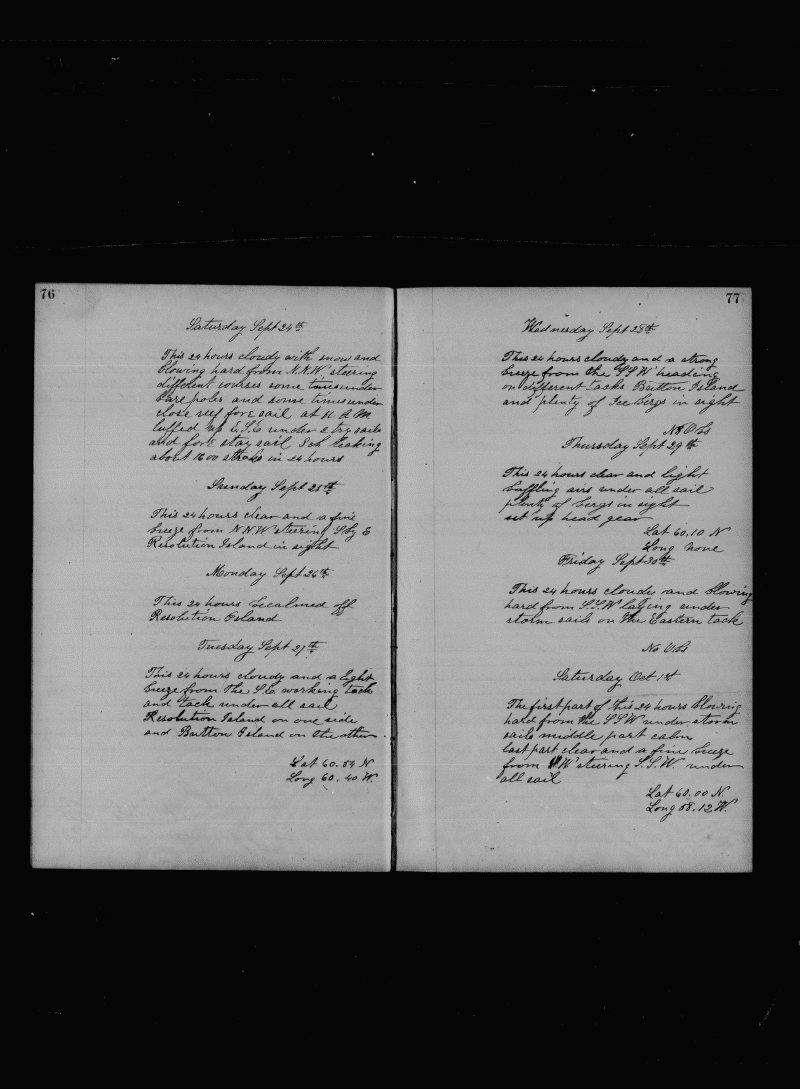 76
Saturday Sept 24th
This 24 hours cloudy with snow and
blowing hard from N.N.W steering
different courses some times under
bare poles and some times under
close reef fore sail at 11 A M
luffed up under 2 try sails
and fore stay sail Sch leaking
about 1600 strokes in 24 hours
Sunday Sept 25th
This 24 hours clear and a fine
breeze from N.N.W steering S by E
Resolution Island in sight
Monday Sept 26th
This 24 hours becalmed off
Resolution Island
Tuesday Sept 27th
This 24 hours cloudy and a light
breeze from the S.E working tack
and tack under all sail
Resolution Island on one side
and Button Island on the other
Lat 60.54 N
Long 60.40 W.
77
Wednesday Sept 28th
This 24 hours cloudy and a strong
breeze from the S.S.W heading
on different tacks Button Island
and plenty of Ice bergs in sight
No Obs
Thursday Sept 29th
This 24 hours clear and light
baffling airs under all sail
plenty of bergs in sight
set up head gear
Lat 60.10 N
Long None
Friday Sept 30th
This 24 hours cloudy and blowing
hard from S.S.W laying under
storm sails on the Eastern tack
No Obs
Saturday Oct 1st
The first part of this 24 hours blowing
hard from the S.S.W under storm
sails middle part calm
last part clear and a fine breeze
from W steering S.S.W. under
all sail
Lat 60.00 N.
Long 58.12 W.